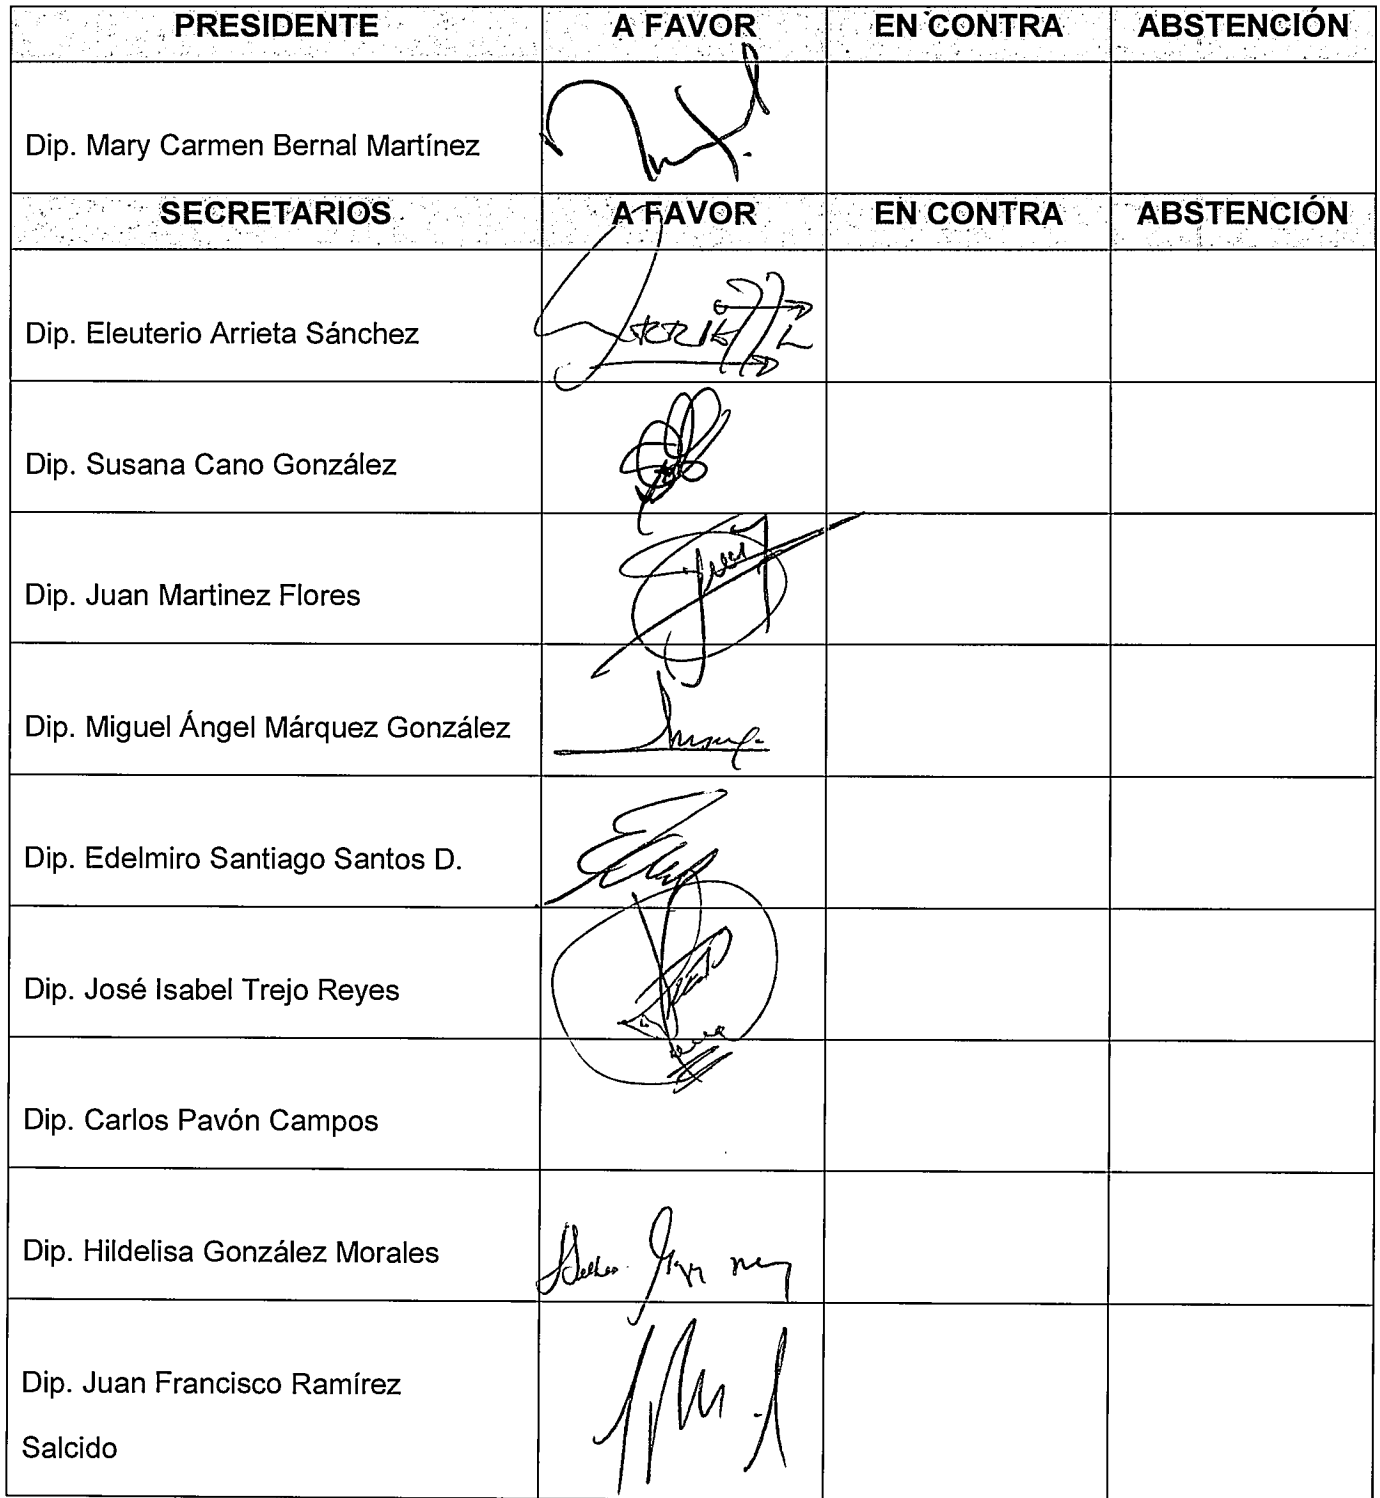 PRESIDENTE A FAVOR EN CONTRA ABSTENCIÓN
Dip. Mary Carmen Bernal Martínez
SECRETARIOS A FAVOR EN CONTRA ABSTENCIÓN
Dip. Eleuterio Arrieta Sánchez
Dip. Susana Cano González
Dip. Juan Martinez Flores
Dip. Miguel Ángel Márquez González
Dip. Edelmiro Santiago Santos D.
Dip. José Isabel Trejo Reyes
Dip. Carlos Pavón Campos
Dip. Hildelisa González Morales
Dip. Juan Francisco Ramírez
Salcido